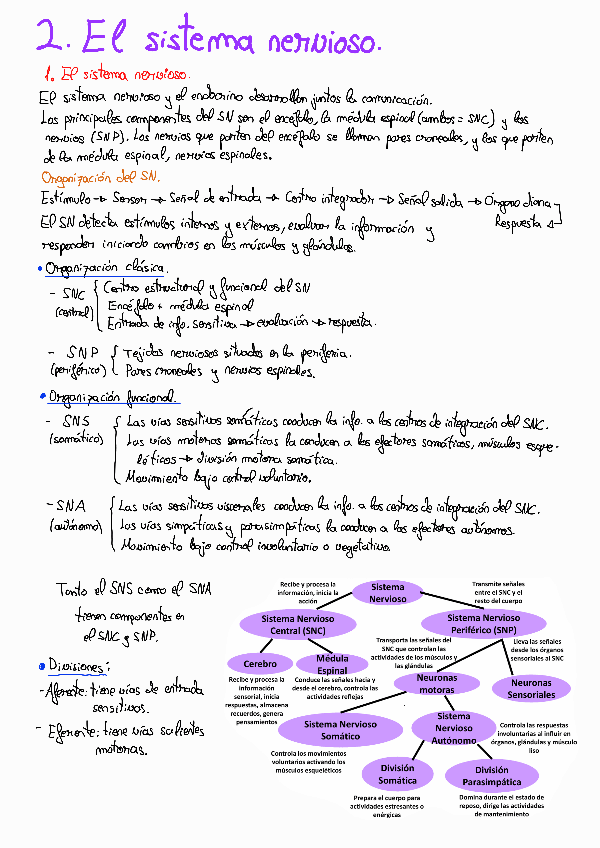 2. El sistema nervioso.
1. El sistema nervioso.
El sistema nervioso y el endocrino desarrollan juntos la comunicación.
Los principales componentes del SN son el encéfalo, la médula espinal (ambos = SNC) y los
nervios (SNP). Los nervios que parten del encéfalo se llaman pares craneales, y los que parten
de la médula espinal, nervios espinales.
Organización del SN.
Estímulo → Sensor → Señal de entrada → Centro integrador → Señal salida → Órgano diana
Respuesta ←
El SN detecta estímulos internos y externos, evaluar la información y
responder iniciando cambios en los músculos y glándulas.
• Organización clásica.
- SNC (central)
Centro estructural y funcional del SN
Encéfalo + médula espinal
Entrada de info. sensitiva → evaluación → respuesta.
- SNP (periférico)
Tejidos nerviosos situados en la periferia.
Pares craneales y nervios espinales.
• Organización funcional.
- SNS (somático)
Las vías sensitivas somáticas conducen la info. a los centros de integración del SNC.
Las vías motoras somáticas la conducen a los efectores somáticos, músculos esque-
léticos → división motora somática.
Movimiento bajo control voluntario.
- SNA (autónomo)
Las vías sensitivas viscerales conducen la info. a los centros de integración del SNC.
Las vías simpáticas y parasimpáticas la conducen a los efectores autónomos.
Movimiento bajo control involuntario o vegetativo.
Tanto el SNS como el SNA
tienen componentes en
el SNC y SNP.
• Divisiones:
- Aferente: tiene vías de entrada
sensitivas.
- Eferente: tiene vías salientes
motoras.
Sistema
Nervioso
Recibe y procesa la
información, inicia la
acción
Transmite señales
entre el SNC y el
resto del cuerpo
Sistema Nervioso
Central (SNC)
Sistema Nervioso
Periférico (SNP)
Transporta las señales del
SNC que controlan las
actividades de los músculos y
las glándulas
Lleva las señales
desde los órganos
sensoriales al SNC
Cerebro
Médula
Espinal
Recibe y procesa la
información
sensorial, inicia
respuestas, almacena
recuerdos, genera
pensamientos
Conduce las señales hacia y
desde el cerebro, controla las
actividades reflejas
Neuronas
motoras
Neuronas
Sensoriales
Sistema Nervioso
Somático
Sistema
Nervioso
Autónomo
Controla las respuestas
involuntarias al influir en
órganos, glándulas y músculo
liso
Controla los movimientos
voluntarios activando los
músculos esqueléticos
División
Somática
División
Parasimpática
Prepara el cuerpo para
actividades estresantes o
enérgicas
Domina durante el estado de
reposo, dirige las actividades
de mantenimiento